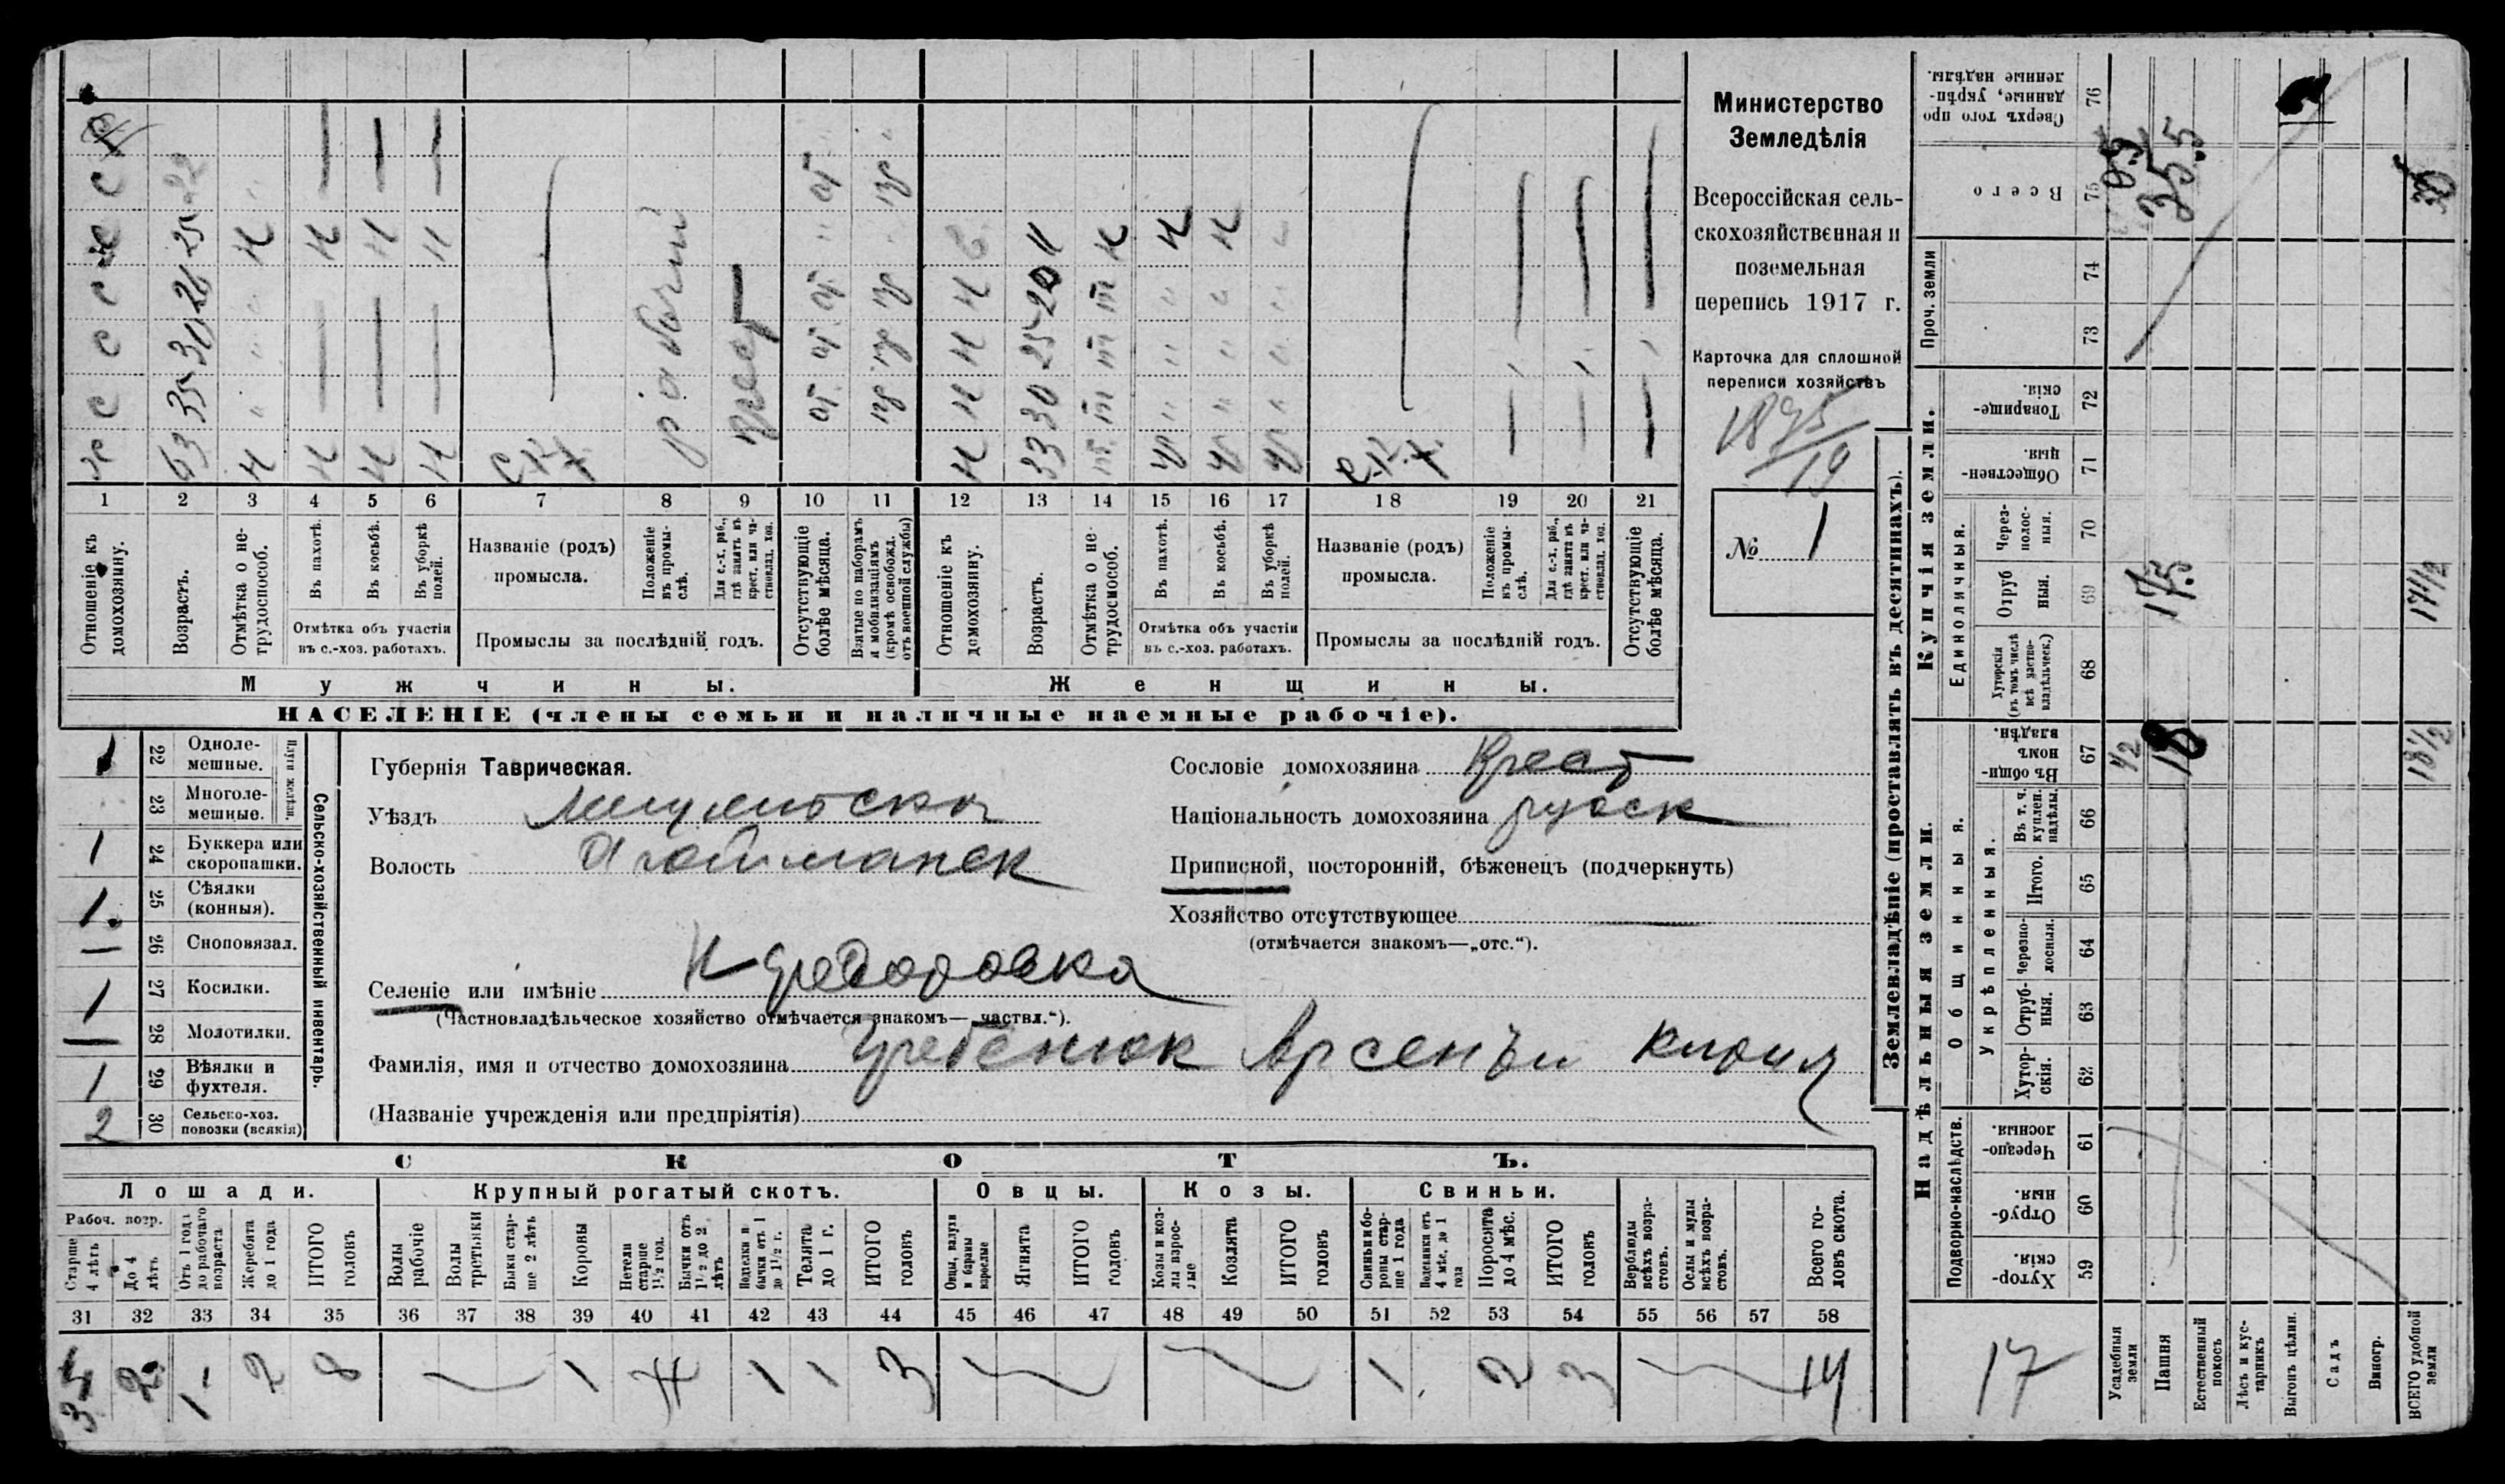 Министерство
Земледѣлія
Всероссійская сель-
скохозяйственная и
поземельная
перепись 1917 г.
Карточка для сплошной
переписи хозяйствъ
1895/19
№ 1
63 35 30 26 25 22
33 30 25 20 11
С.Х.
рабочій
крест
С.Х.
1 2 3 4 5 6 7 8 9 10 11 12 13 14 15 16 17 18 19 20 21
Отношеніе къ домохозяину.
Возрастъ.
Отмѣтка о не-трудоспособ.
Въ пахотѣ.
Въ косьбѣ.
Въ уборкѣ полей.
Отмѣтка объ участіи въ с.-хоз. работахъ.
Названіе (родъ) промысла.
Положеніе въ промы-слѣ.
Для с.-х. раб., гдѣ занятъ въ крест. или ча-стновлад. хоз.
Промыслы за послѣдній годъ.
Отсутствующіе болѣе мѣсяца.
Взятые по наборамъ и мобилизаціямъ (кромѣ освобожд. отъ военной службы)
Отношеніе къ домохозяину.
Возрастъ.
Отмѣтка о не-трудоспособ.
Въ пахотѣ.
Въ косьбѣ.
Въ уборкѣ полей.
Отмѣтка объ участіи въ с.-хоз. работахъ.
Названіе (родъ) промысла.
Положеніе въ промы-слѣ.
Для с.-х. раб., гдѣ занята въ крест. или ча-стновлад. хоз.
Промыслы за послѣдній годъ.
Отсутствующіе болѣе мѣсяца.
Мужчины.
Женщины.
НАСЕЛЕНІЕ (члены семьи и наличные наемные рабочіе).
Сельско-хозяйственный инвентарь.
Плуги желѣзн.
22 Одноле-мешные. 1
23 Многоле-мешные.
24 Буккера или скоропашки. 1
25 Сѣялки (конныя). 1
26 Сноповязал. —
27 Косилки. 1
28 Молотилки. —
29 Вѣялки и фухтеля. 1
30 Сельско-хоз. повозки (всякія) 2
Губернія Таврическая.
Уѣздъ Мелитопск
Волость Агайманск
Селеніе или имѣніе Н Федоровка
(Частновладѣльческое хозяйство отмѣчается знакомъ—„частвл.“).
Фамилія, имя и отчество домохозяина Гребенюк Арсенъи Кирил
(Названіе учрежденія или предпріятія)
Сословіе домохозяина Крест
Національность домохозяина русск
Приписной, посторонній, бѣженецъ (подчеркнуть)
Хозяйство отсутствующее
(отмѣчается знакомъ—„отс.“).
СКОТЪ.
Лошади.
Крупный рогатый скотъ.
Овцы.
Козы.
Свиньи.
Рабоч. возр.
Старше 4 лѣтъ
До 4 лѣтъ
Отъ 1 года до рабочаго возраста
Жеребята до 1 года
ИТОГО головъ
Волы рабочіе
Волы третьяки
Быки стар-ше 2 лѣтъ
Коровы
Нетели старше 1½ год.
Бычки отъ 1½ до 2 лѣтъ
Подтелки и бычки отъ 1 до 1½ г.
Телята до 1 г.
ИТОГО головъ
Овцы, валухи и бараны взрослые
Ягнята
ИТОГО головъ
Козы и коз-лы взрос-лые
Козлята
ИТОГО головъ
Свиньи и бо-ровы стар-ше 1 года
Подсвинки отъ 4 мѣс. до 1 года
Поросята до 4 мѣс.
ИТОГО головъ
Верблюды всѣхъ возра-стовъ.
Ослы и мулы всѣхъ возра-стовъ.
Всего го-ловъ скота.
31 32 33 34 35 36 37 38 39 40 41 42 43 44 45 46 47 48 49 50 51 52 53 54 55 56 57 58
2 1 2 8 1 1 1 3 1 2 3 14
Землевладѣніе (проставлять въ десятинахъ).
Купчія земли.
Надѣльныя земли.
Сверхъ того про-данные, укрѣп-ленные надѣлы. 76
Всего 75
Проч. земли 74 73
Товарище-скія. 72
Обществен-ныя. 71
Единоличныя.
Через-полос-ныя. 70
Отруб-ныя. 69
Хуторскія (въ томъ числѣ всѣ частно-владѣльческ.) 68
Общинныя.
Въ общин-номъ владѣн. 67
Укрѣпленныя.
Въ т. ч. куплен. надѣлы. 66
Итого. 65
Черезпо-лосныя. 64
Отруб-ныя. 63
Хутор-скія. 62
Подворно-наслѣдств.
Черезпо-лосныя. 61
Отруб-ныя. 60
Хутор-скія. 59
0.5
35.5
17.5
17½
½
18
18½
17
Усадебныя земли
Пашня
Естественный покосъ
Лѣсъ и кус-тарникъ
Выгонъ цѣлин.
Садъ
Виногр.
ВСЕГО удобной земли